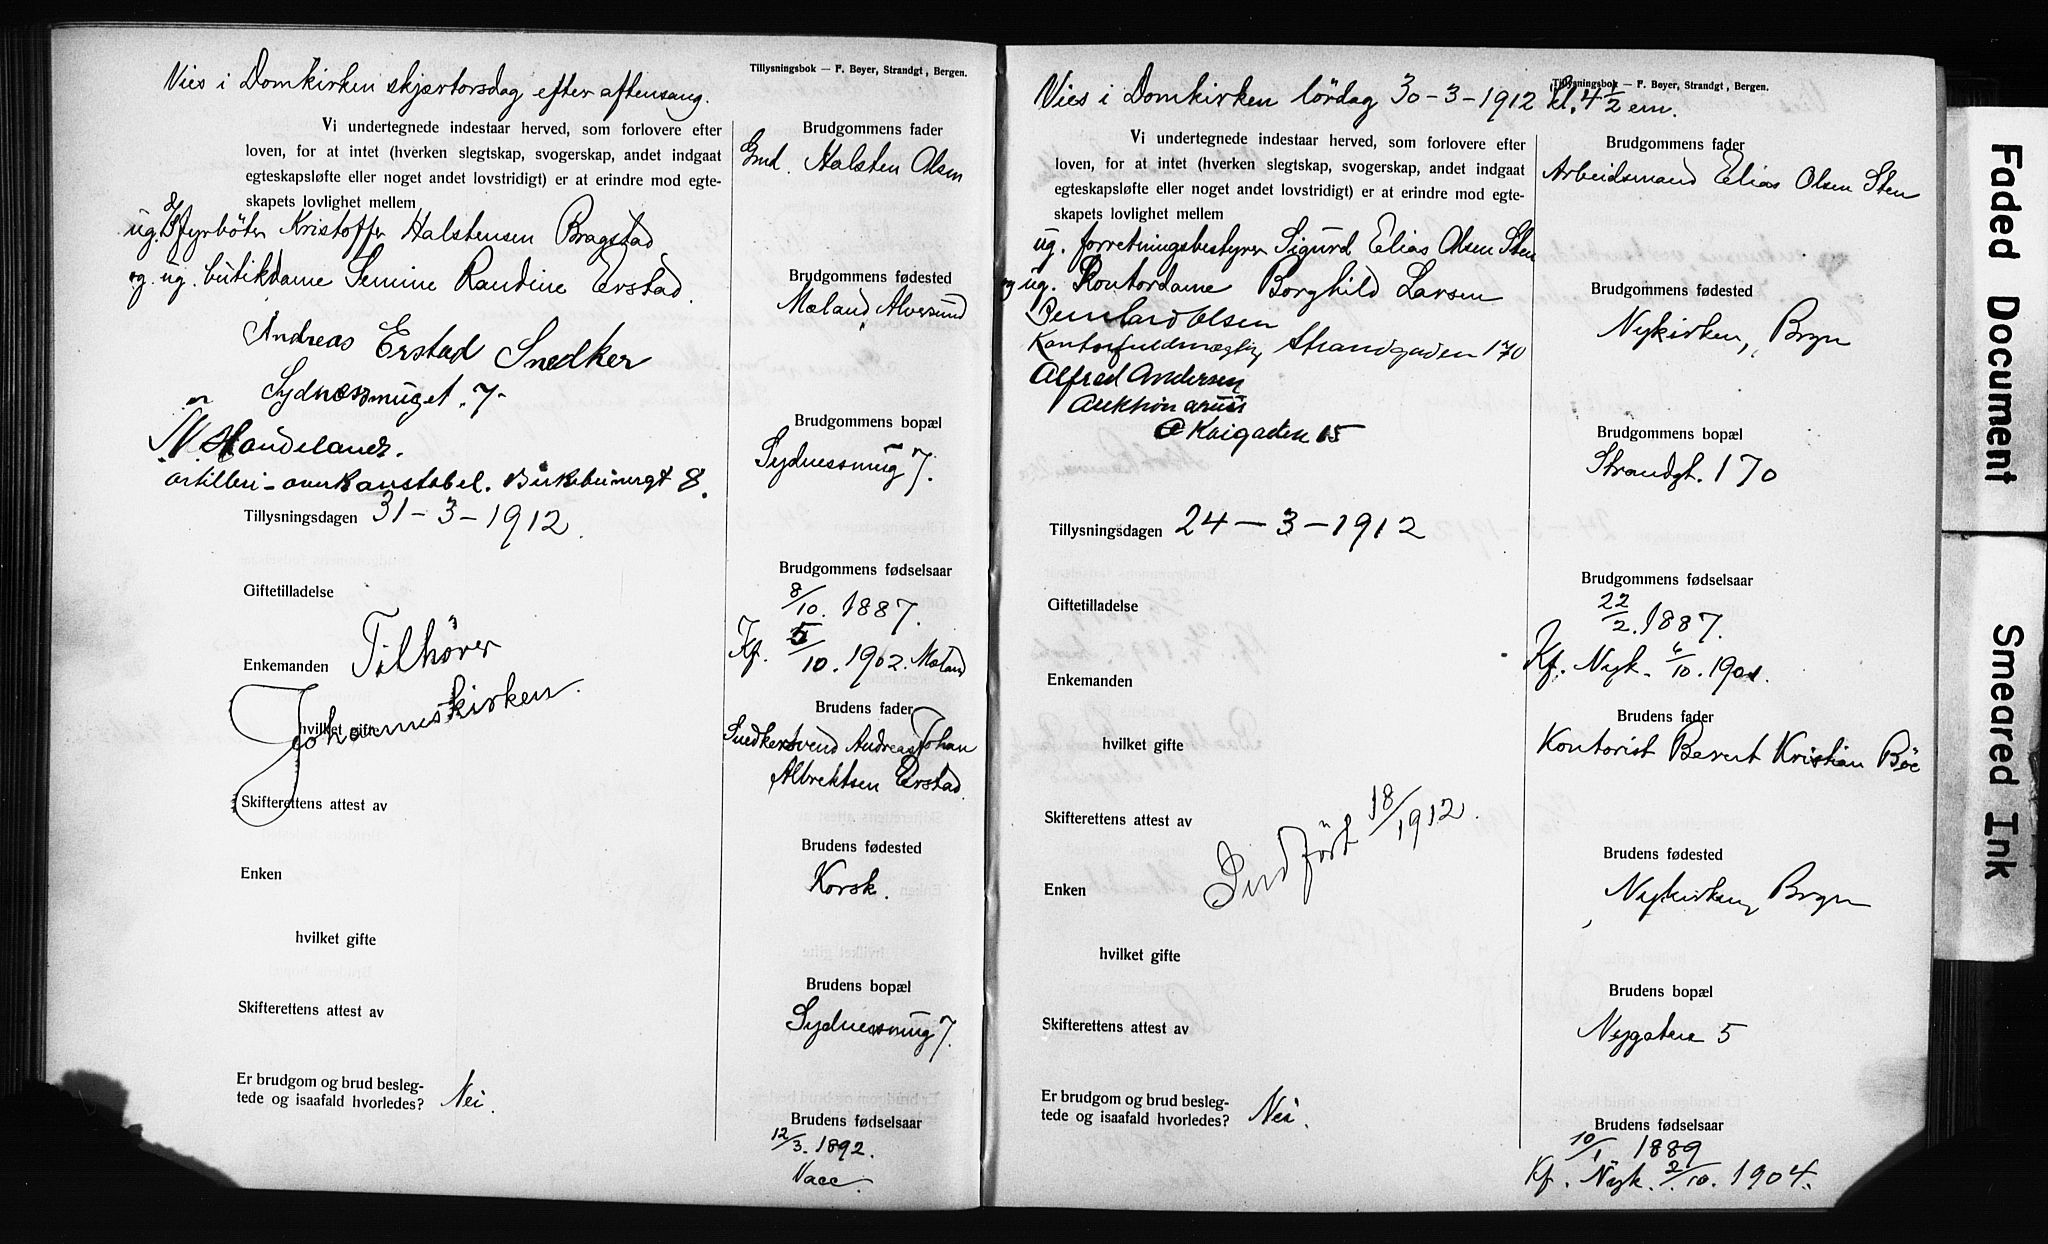 Vies i Domkirken skjærtorsdag efter aftensang.
Tillysningsbok — F. Beyer, Strandgt, Bergen.
Vi undertegnede indestaar herved, som forlovere efter
loven, for at intet (hverken slegtskap, svogerskap, andet indgaat
egteskapsløfte eller noget andet lovstridigt) er at erindre mod egte-
skapets lovlighet mellem
ug. fyrbøter Kristoffer Halstensen Bragstad
og ug. butikdame Semine Randine Erstad.
Andreas Erstad Snedker
Sydnessmuget 7
N. Handeland.
artilleri-overkonstabel. Birkebeinergt 8.
Tillysningsdagen 31-3-1912.
Giftetilladelse
Enkemanden
Tilhører
Johanneskirken.
hvilket gifte
Skifterettens attest av
Enken
hvilket gifte
Skifterettens attest av
Er brudgom og brud besleg-
tede og isaafald hvorledes? Nei.
Brudgommens fader
Gmd. Halsten Olsen
Brudgommens fødested
Mæland, Alversund
Brudgommens bopæl
Sydnessmug 7.
Brudgommens fødselsaar
8/10. 1887.
Kf. 5/10. 1902. Mæland
Brudens fader
Snedkersvend Andreas Johan
Albrektsen Erstad.
Brudens fødested
Korsk.
Brudens bopæl
Sydnessmug 7.
Brudens fødselsaar
12/3. 1892.
Vacc.
Vies i Domkirken lördag 30-3-1912 kl. 4 1/2 em.
Tillysningsbok — F. Beyer, Strandgt, Bergen.
Vi undertegnede indestaar herved, som forlovere efter
loven, for at intet (hverken slegtskap, svogerskap, andet indgaat
egteskapsløfte eller noget andet lovstridigt) er at erindre mod egte-
skapets lovlighet mellem
ug. forretningsbestyrer Sigurd Elias Olsen Sten
og ug. Kontordame Borghild Larsen
Bernhard Olsen
Kontorfuldmægtig Strandgaden 170
Alfred Andersen
Kaigaden 15
Tillysningsdagen 24-3-1912
Giftetilladelse
Enkemanden
hvilket gifte
Skifterettens attest av
Indført 18/1912.
Enken
hvilket gifte
Skifterettens attest av
Er brudgom og brud besleg-
tede og isaafald hvorledes? Nei.
Brudgommens fader
Arbeidsmand Elias Olsen Sten
Brudgommens fødested
Nykirken, Brgn
Brudgommens bopæl
Strandgt. 170
Brudgommens fødselsaar
22/2. 1887.
Kf. Nyk. 6/10. 1901.
Brudens fader
Kontorist Berent Kristian Bøe
Brudens fødested
Nykirken, Brgn
Brudens bopæl
Nygaten 5
Brudens fødselsaar
10/1 1889
Kf. Nyk. 2/10. 1904.
Faded Document
Smeared Ink